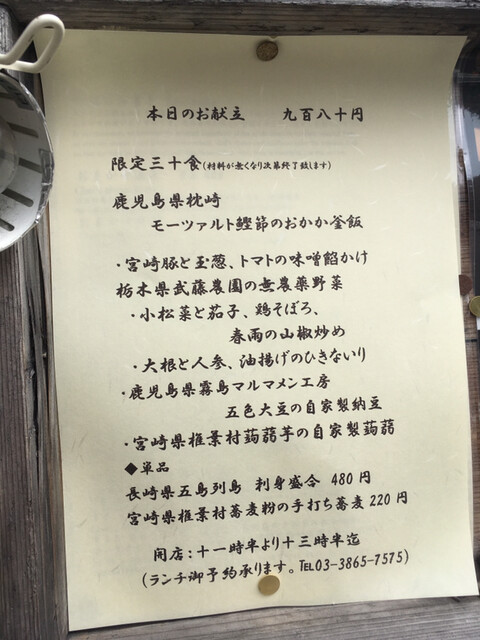 本日のお献立　九百八十円
限定三十食(材料が無くなり次第終了致します)
鹿児島県枕崎
モーツァルト鰹節のおかか釜飯
・宮崎豚と玉葱、トマトの味噌餡かけ
栃木県武藤農園の無農薬野菜
・小松菜と茄子、鶏そぼろ、
春雨の山椒炒め
・大根と人参、油揚げのひきないり
・鹿児島県霧島マルマメン工房
五色大豆の自家製納豆
・宮崎県椎葉村蒟蒻芋の自家製蒟蒻
◆単品
長崎県五島列島　刺身盛合　480円
宮崎県椎葉村蕎麦粉の手打ち蕎麦220円
開店：十一時半より十三時半迄
(ランチ御予約承ります。TEL03-3865-7575)